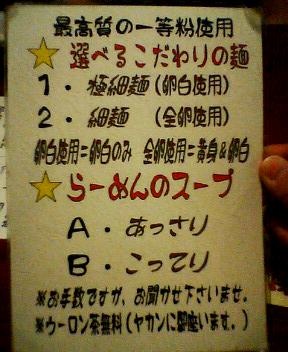 最高質の一等粉使用
☆選べるこだわりの麺
1・極細麺(卵白使用)
2・細麺(全卵使用)
卵白使用=卵白のみ 全卵使用=黄身&卵白
☆らーめんのスープ
A・あっさり
B・こってり
※お手数ですが、お聞かせ下さいませ。
※ウーロン茶無料(ヤカンに御座います。)